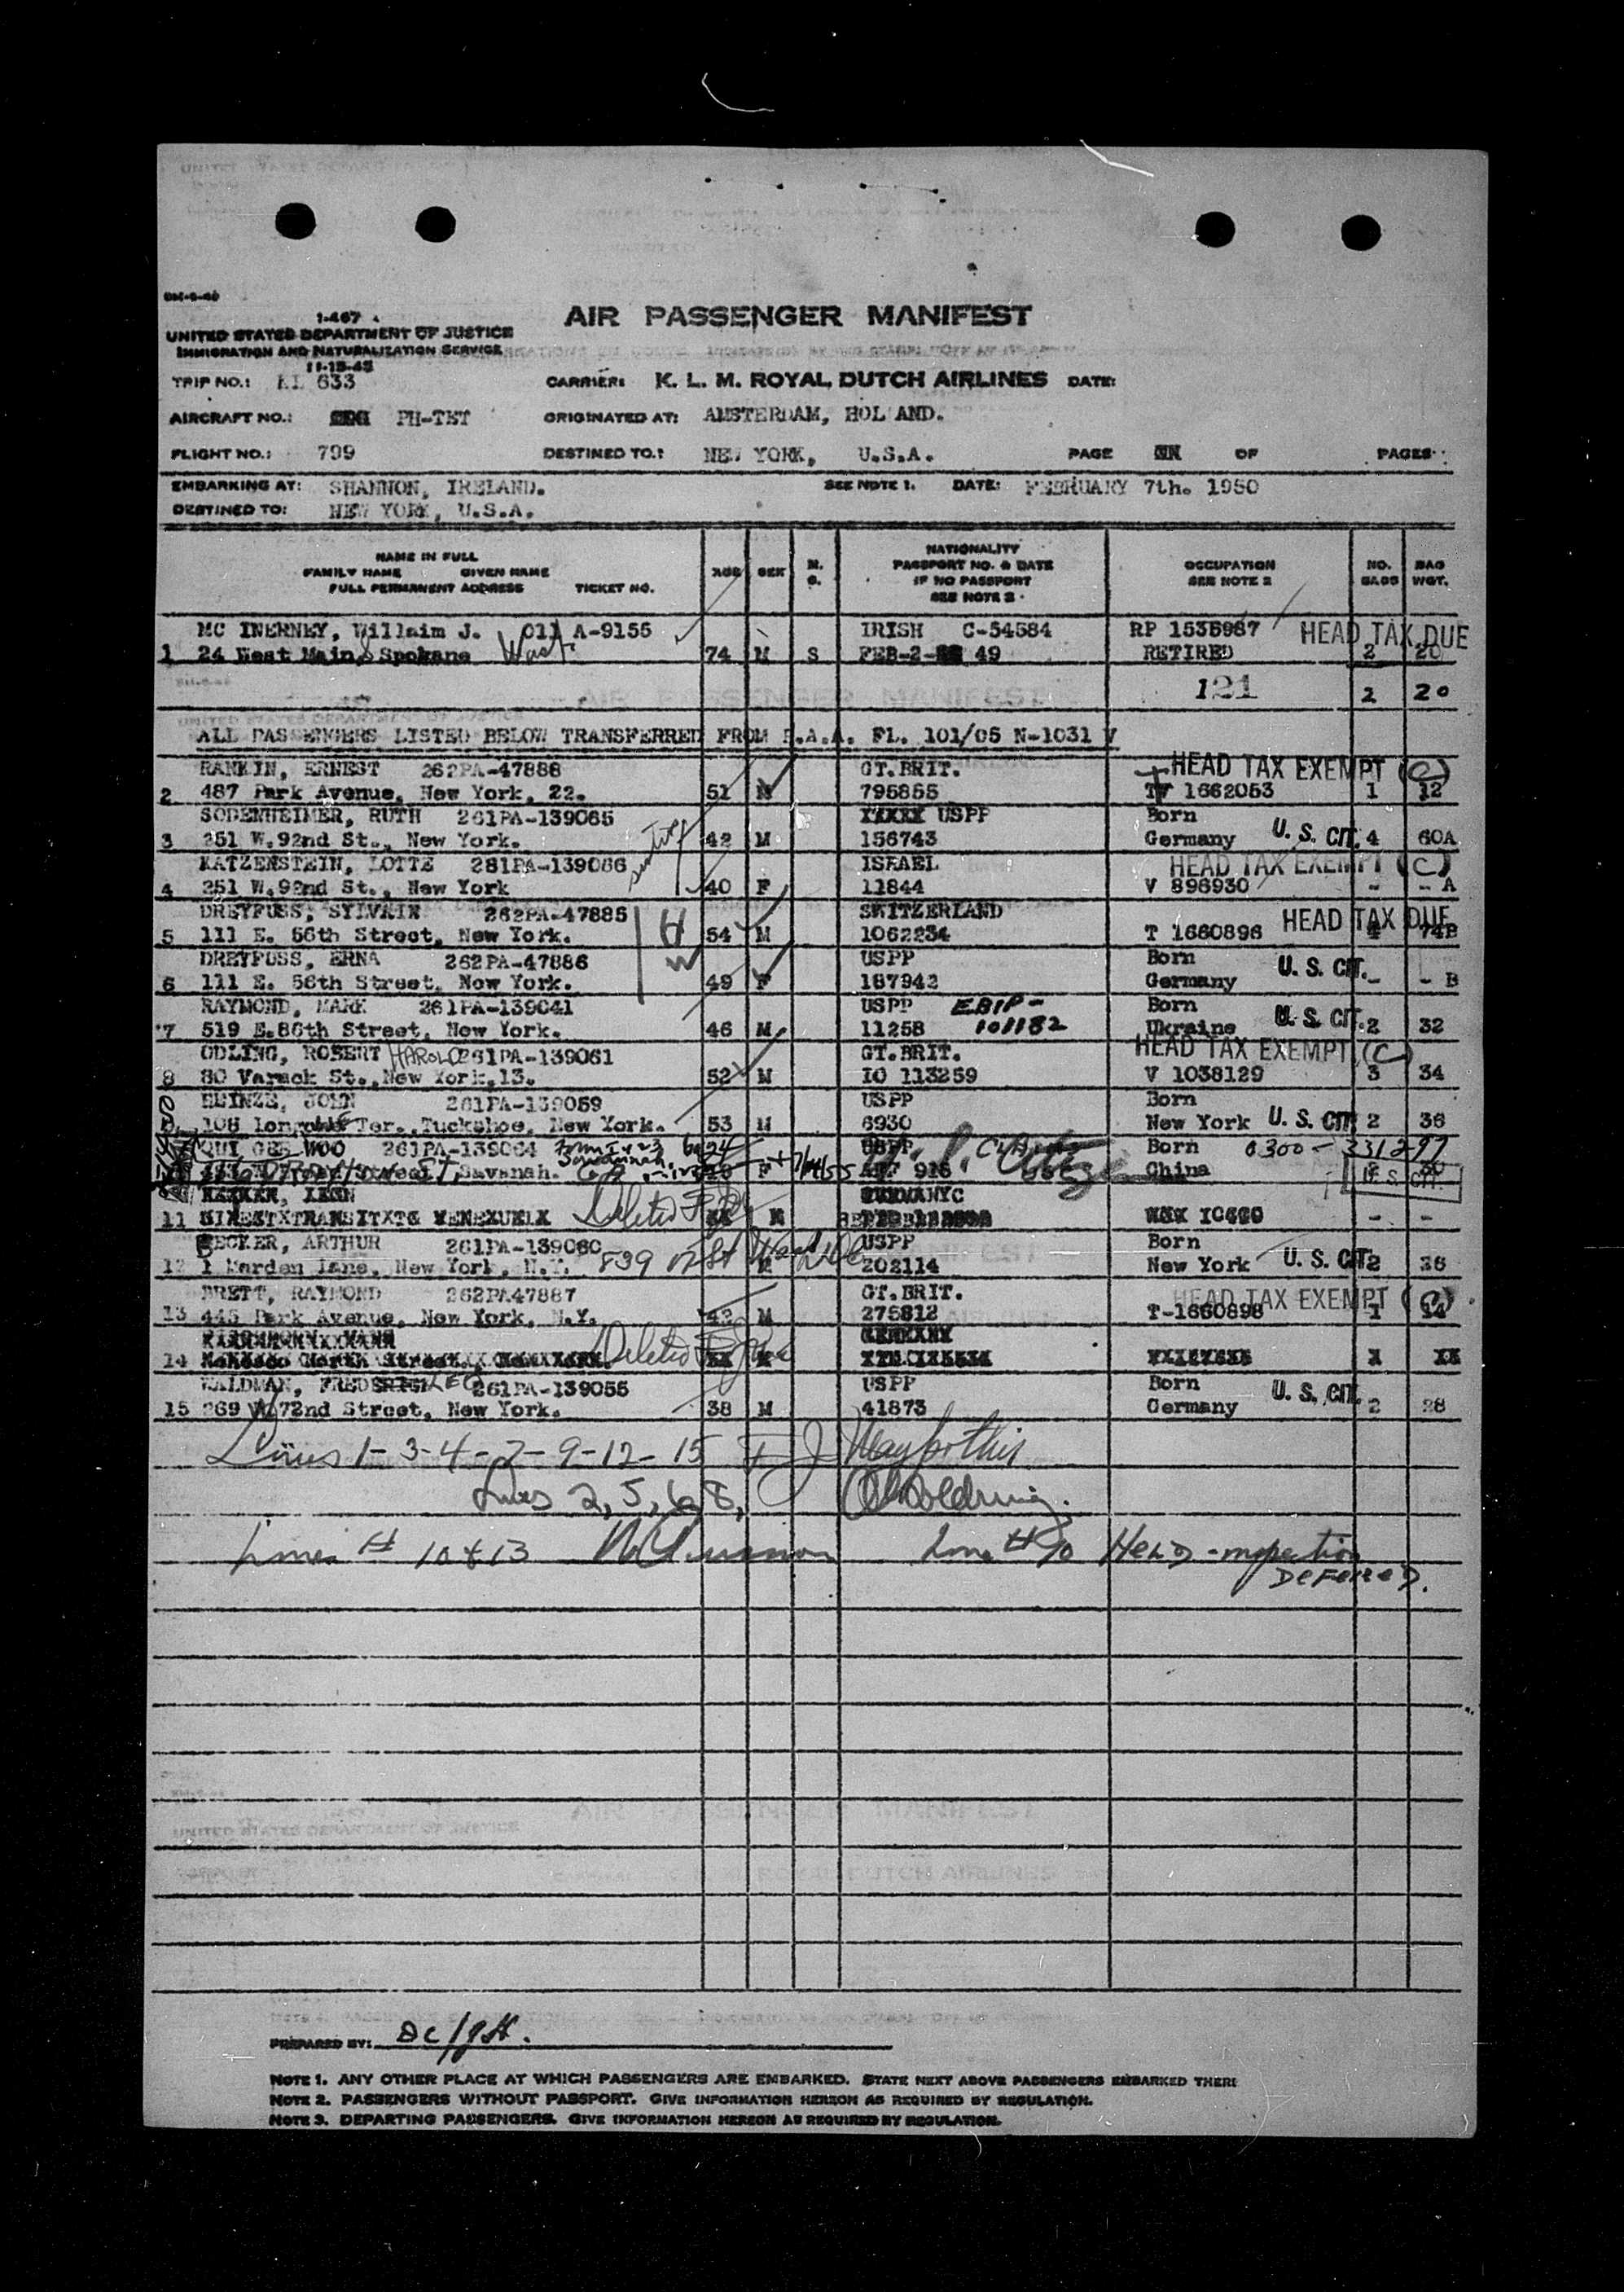 1-467
UNITED STATES DEPARTMENT OF JUSTICE
IMMIGRATION AND NATURALIZATION SERVICE
11-15-45
AIR PASSENGER MANIFEST
TRIP NO.: KL 633 CARRIER: K. L. M. ROYAL DUTCH AIRLINES DATE:
AIRCRAFT NO.: PH-TET ORIGINATED AT: AMSTERDAM, HOL AND.
FLIGHT NO.: 799 DESTINED TO.: NEW YORK, U.S.A. PAGE OF PAGES
EMBARKING AT: SHANNON, IRELAND. SEE NOTE 1. DATE: FEBRUARY 7th. 1950
DESTINED TO: NEW YORK, U.S.A.
NAME IN FULL
FAMILY NAME GIVEN NAME
FULL PERMANENT ADDRESS TICKET NO.
AGE SEX M. S.
NATIONALITY
PASSPORT NO. & DATE
IF NO PASSPORT
SEE NOTE 2
OCCUPATION
SEE NOTE 2
NO. BAGS
BAG WGT.
MC INERNEY, Willaim J. 011 A-9155 IRISH C-54584 RP 1535987 HEAD TAX DUE
1 24 West Main, Spokane Wash. 74 M S FEB-2- 49 RETIRED 2 20
121 2 20
ALL PASSENGERS LISTED BELOW TRANSFERRED FROM P.A.A. FL. 101/05 N-1031 V
RANKIN, ERNEST 262PA-47888 GT.BRIT. HEAD TAX EXEMPT (C)
2 487 Park Avenue, New York, 22. 51 M 795855 TV 1662053 1 12
SODENHEIMER, RUTH 261PA-139065 USPP Born
3 251 W.92nd St., New York. 42 M 156743 Germany U. S. CIT. 4 60A
KATZENSTEIN, LOTTE 261PA-139066 ISRAEL HEAD TAX EXEMPT (C)
4 251 W.92nd St., New York 40 F 11844 V 896930 - - A
DREYFUSS, SYLVAIN 262PA-47885 H SWITZERLAND HEAD TAX DUE
5 111 E. 56th Street, New York. 54 M 1062234 T 1660896 4 74B
DREYFUSS, ERNA 262PA-47886 W USPP Born
6 111 E. 56th Street, New York. 49 F 187942 Germany U. S. CIT. - - B
RAYMOND, MARK 261PA-139041 USPP Born
7 519 E.86th Street, New York. 46 M 11258 101182 Ukraine U. S. CIT. 2 32
ODLING, ROBERT HAROLD 261PA-139061 GT.BRIT. HEAD TAX EXEMPT (C)
8 80 Varack St.,New York,13. 52 M IO 113259 V 1038129 3 34
HEINZE, JOHN 261PA-139059 USPP Born
106 Ter.,Tuckahoe, New York. 53 M 6930 New York U. S. CIT 2 36
QUI GEE WOO 261PA-139064 Born 0300-331297
Savanah. F 916 China U. S. CIT.
11 Deleted - -
BECKER, ARTHUR 261PA-139060 USPP Born
12 1 Marden Lane, New York, N.Y. M 202114 New York U. S. CIT 2 26
BRETT, RAYMOND 262PA47887 GT.BRIT. HEAD TAX EXEMPT (C)
13 445 Park Avenue, New York, N.Y. 42 M 275812 T-1660898 1 14
14 Deleted
WALDMAN, FREDERICK LEO 261PA-139055 USPP Born
15 269 W 72nd Street, New York. 38 M 41873 Germany U. S. CIT. 2 28
Lines 1-3-4-7-9-12-15
Lines 2, 5, 6, 8,
Lines # 10 & 13 Line # 10 HELD - inspection
DEFERRED.
PREPARED BY:
NOTE 1. ANY OTHER PLACE AT WHICH PASSENGERS ARE EMBARKED. STATE NEXT ABOVE PASSENGERS EMBARKED THERE
NOTE 2. PASSENGERS WITHOUT PASSPORT. GIVE INFORMATION HEREON AS REQUIRED BY REGULATION.
NOTE 3. DEPARTING PASSENGERS. GIVE INFORMATION HEREON AS REQUIRED BY REGULATION.